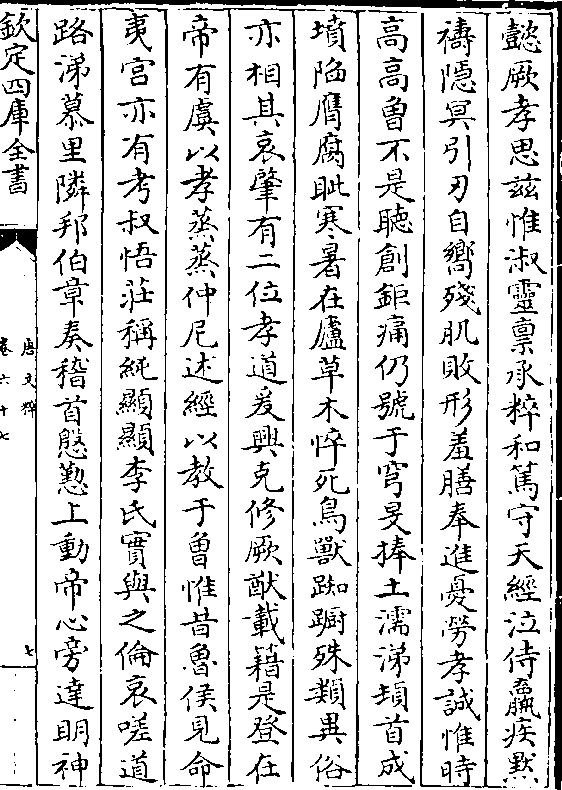 懿厥孝思兹惟淑靈禀承粹和篤守天經泣侍羸疾黙
禱隠冥引刃自嚮殘肌敗形羞膳奉進憂勞孝誠惟時
高高曽不是聽創鉅痛仍號于穹旻捧土濡涕頓首成
墳陷膺腐眦寒暑在廬草木悴死鳥獸踟蹰殊類異俗
亦相其哀肇有二位孝道爰興克修厥猷載籍是登在
帝有虞以孝蒸蒸仲尼述經以教于魯惟昔魯侯見命
夷宫亦有考叔悟莊稱純顯顯李氏實與之倫哀嗟道
路涕慕里隣邦伯章奏稽首慇懃上動帝心旁達明神
欽定四庫全書
唐文粹
卷六十七
七